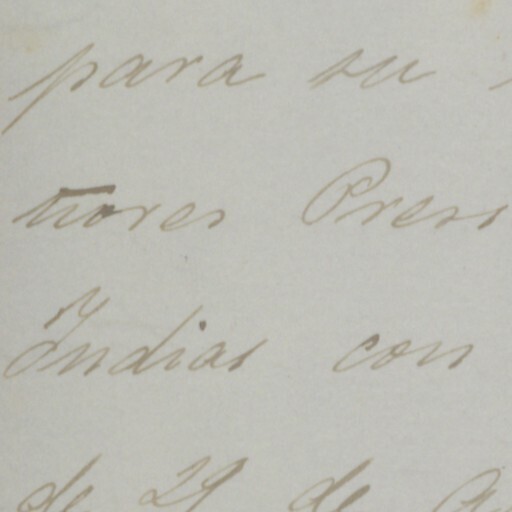 para su
tiores Pres
Indias con
de 29 de